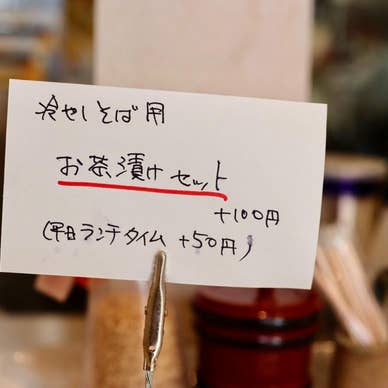 冷やしそば用
お茶漬けセット
+100円
(平日ランチタイム +50円)